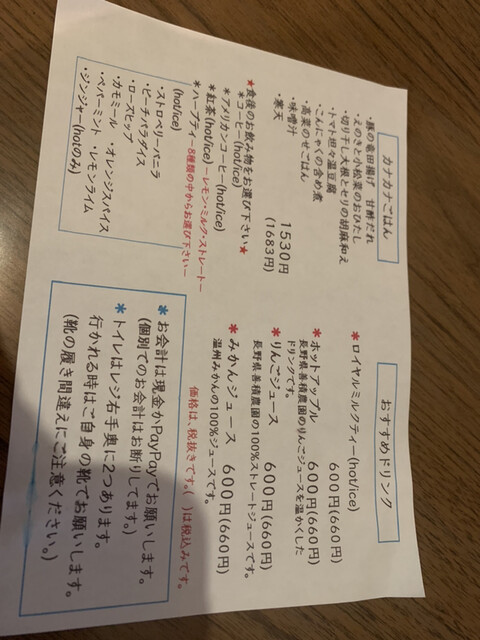 カナカナごはん
・豚の竜田揚げ 甘酢だれ
・えのきと小松菜のおひたし
・切り干し大根とセリの胡麻和え
・トマト担々温豆腐
・こんにゃくの含め煮
・高菜のせごはん
・味噌汁
・寒天
1530円
(1683円)
★食後のお飲み物をお選び下さい★
＊コーヒー(hot/ice)
＊アメリカンコーヒー(hot/ice)
＊紅茶(hot/ice)ーレモン・ミルク・ストレートー
＊ハーブティー8種類の中からお選び下さいー
(hot/ice)
・ストロベリーバニラ
・ピーチパラダイス
・ローズヒップ
・カモミール ・オレンジスパイス
・ペパーミント ・レモンライム
・ジンジャー(hotのみ)
おすすめドリンク
＊ロイヤルミルクティー(hot/ice)
600円(660円)
＊ホットアップル 600円(660円)
長野県善積農園のりんごジュースを温かくした
ドリンクです。
＊りんごジュース 600円(660円)
長野県善積農園の100%ストレートジュースです。
＊みかんジュース 600円(660円)
温州みかんの100%ジュースです。
価格は、税抜きです。( )は税込みです。
＊お会計は現金かPayPayでお願いします。
(個別でのお会計はお断りしてます。)
＊トイレはレジ右手奥に2つあります。
行かれる時はご自身の靴でお願いします。
(靴の履き間違えにご注意ください。)